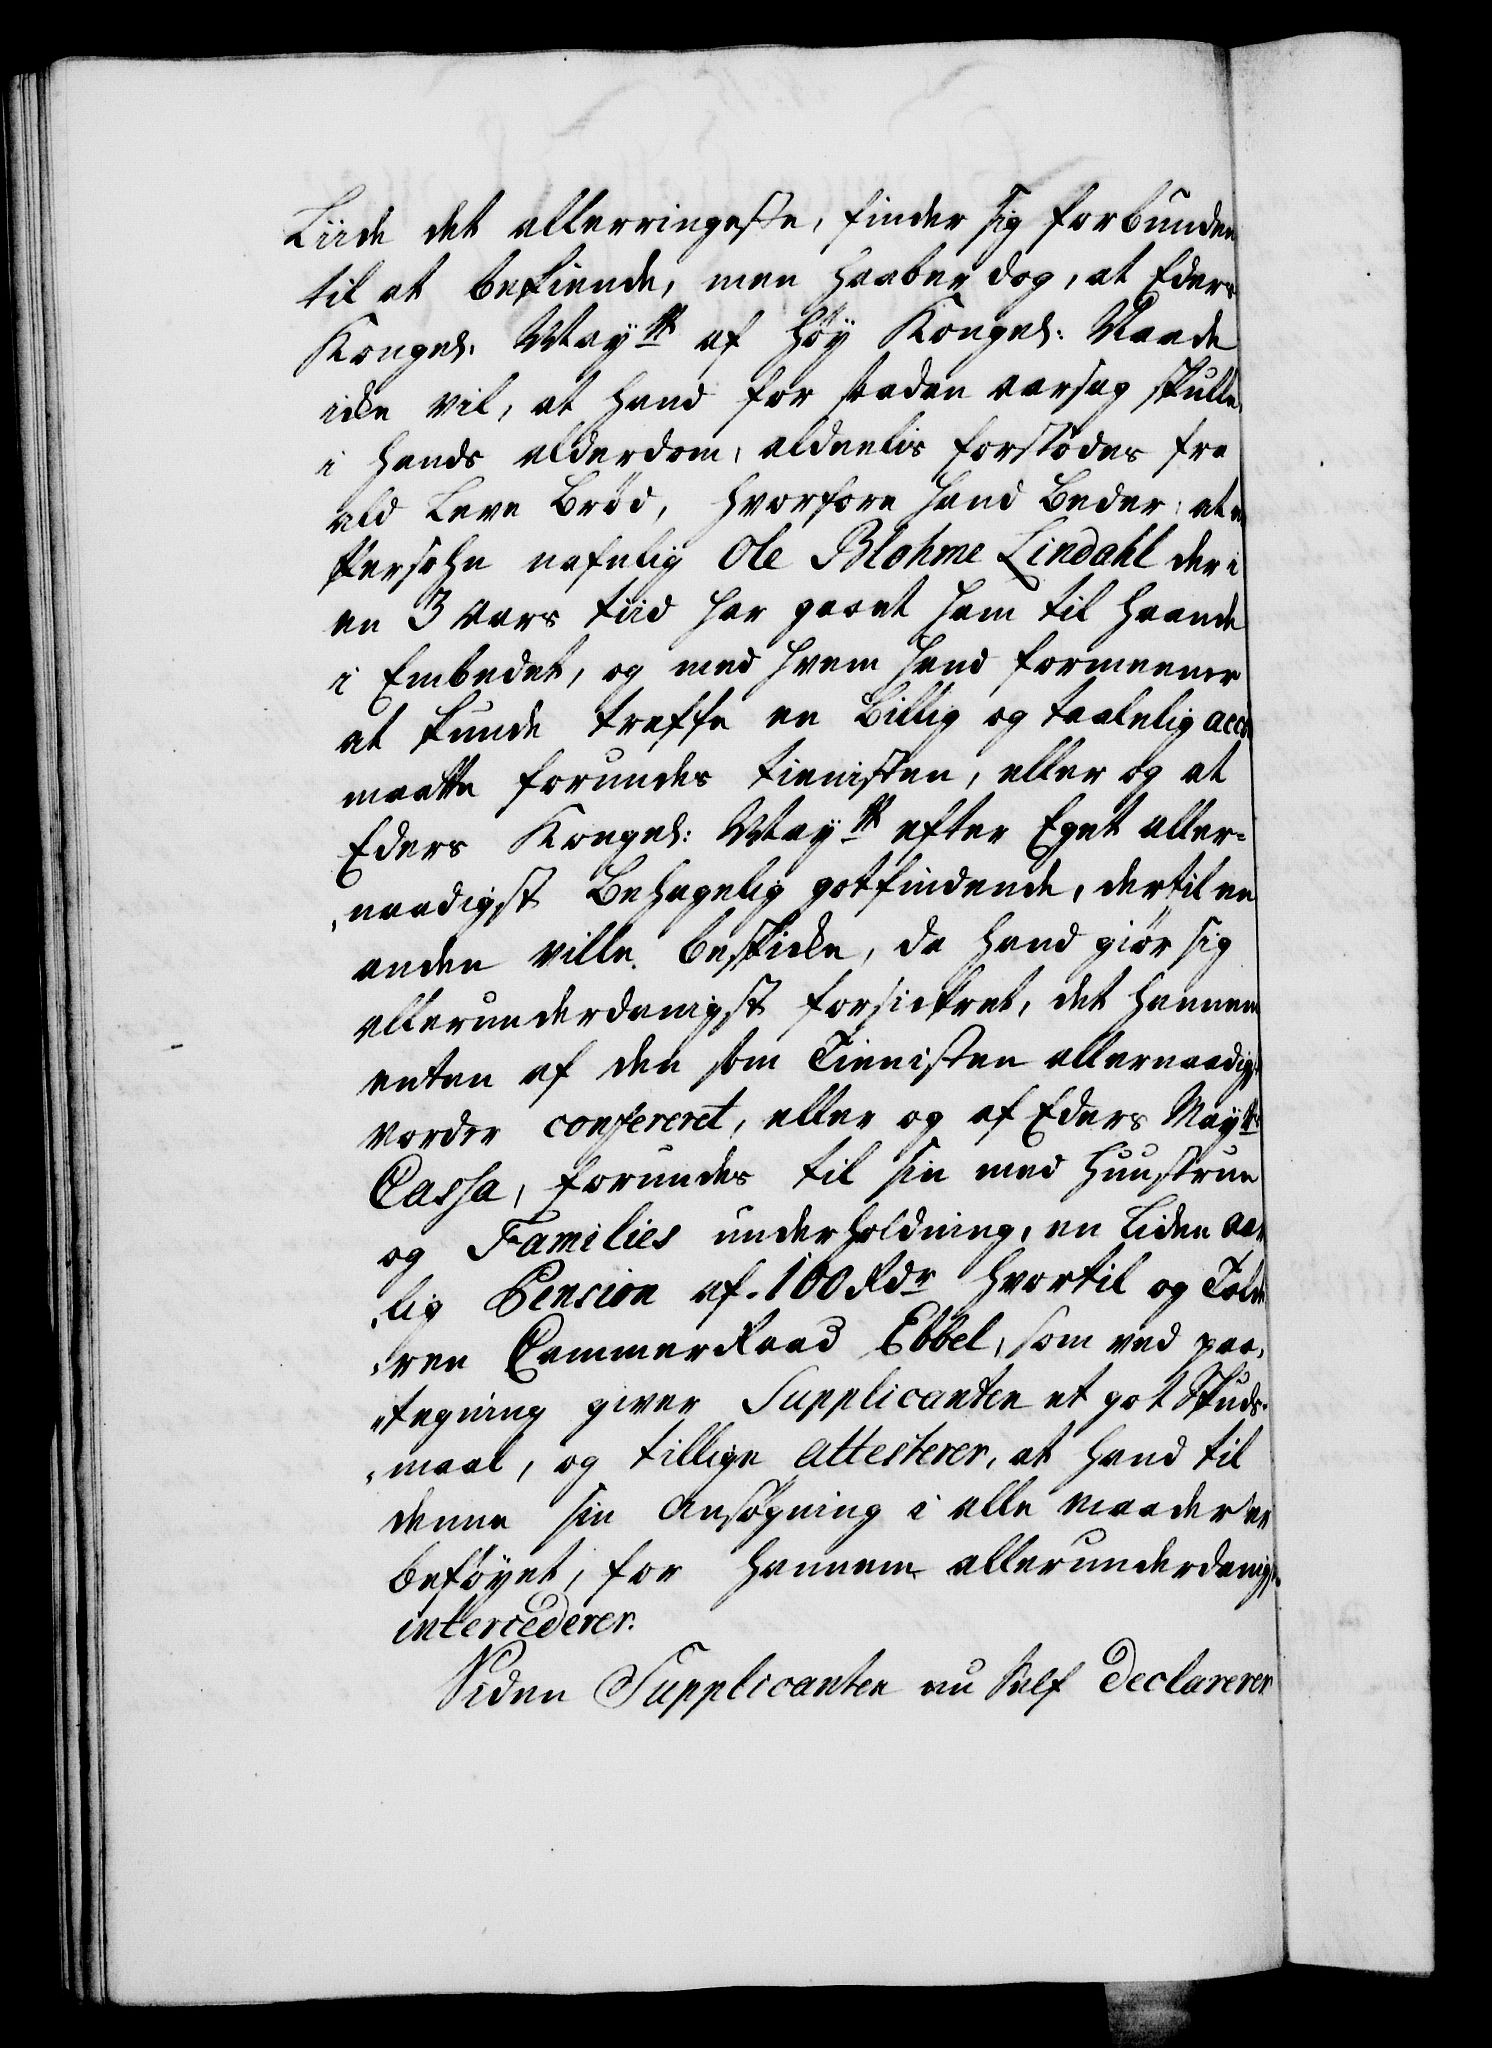 Liide det allerringeste, finder sig forbunden
til at bekiende, men haaber dog, at Eders
Kongel. May:tt af høy Kongel: Naade
icke vil, at hand for saadan aarsag skulle
i hands alderdom, aldeelis forstødes fra
ald Leve Brød, hvorfore hand Beder, at
Persohn nafnlig Ole Blohme Lindahl der i
en 3 Aars tiid har gaaet ham til haande
i Embedet, og med hvem hand formeener
at kunde treffe en Billig og taalelig
maatte forundes tienisten, eller og at
Eders Kongel: May:tt efter Eget aller-
naadigst Behagelig gotfindende, dertil en
anden ville beskicke, da hand giør sig
allerunderdanigst forsickret, det hannem
enten af den som Tienisten allernaadigst
vorder confereret, eller og af Eders May:tts
Cassa, forundes til sin med Huustrue
og Families underholdning, en Liden aar-
lig Pension af 100 Rdr hvortil og Tolde-
ren CammerRaad Ebbel, som ved paa-
tegning giver Supplicanten et got Skuds-
maal, og tillige attesterer, at hand til
denne sin Ansøgning i alle maader er
beføyet, for hannem allerunderdanigst
intercederer.
Siden Supplicanten nu Self Declarerer